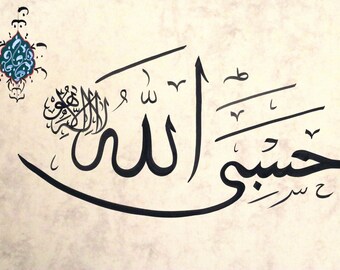 حَسْبِيَ اللّٰهُ لا إله إلا هو